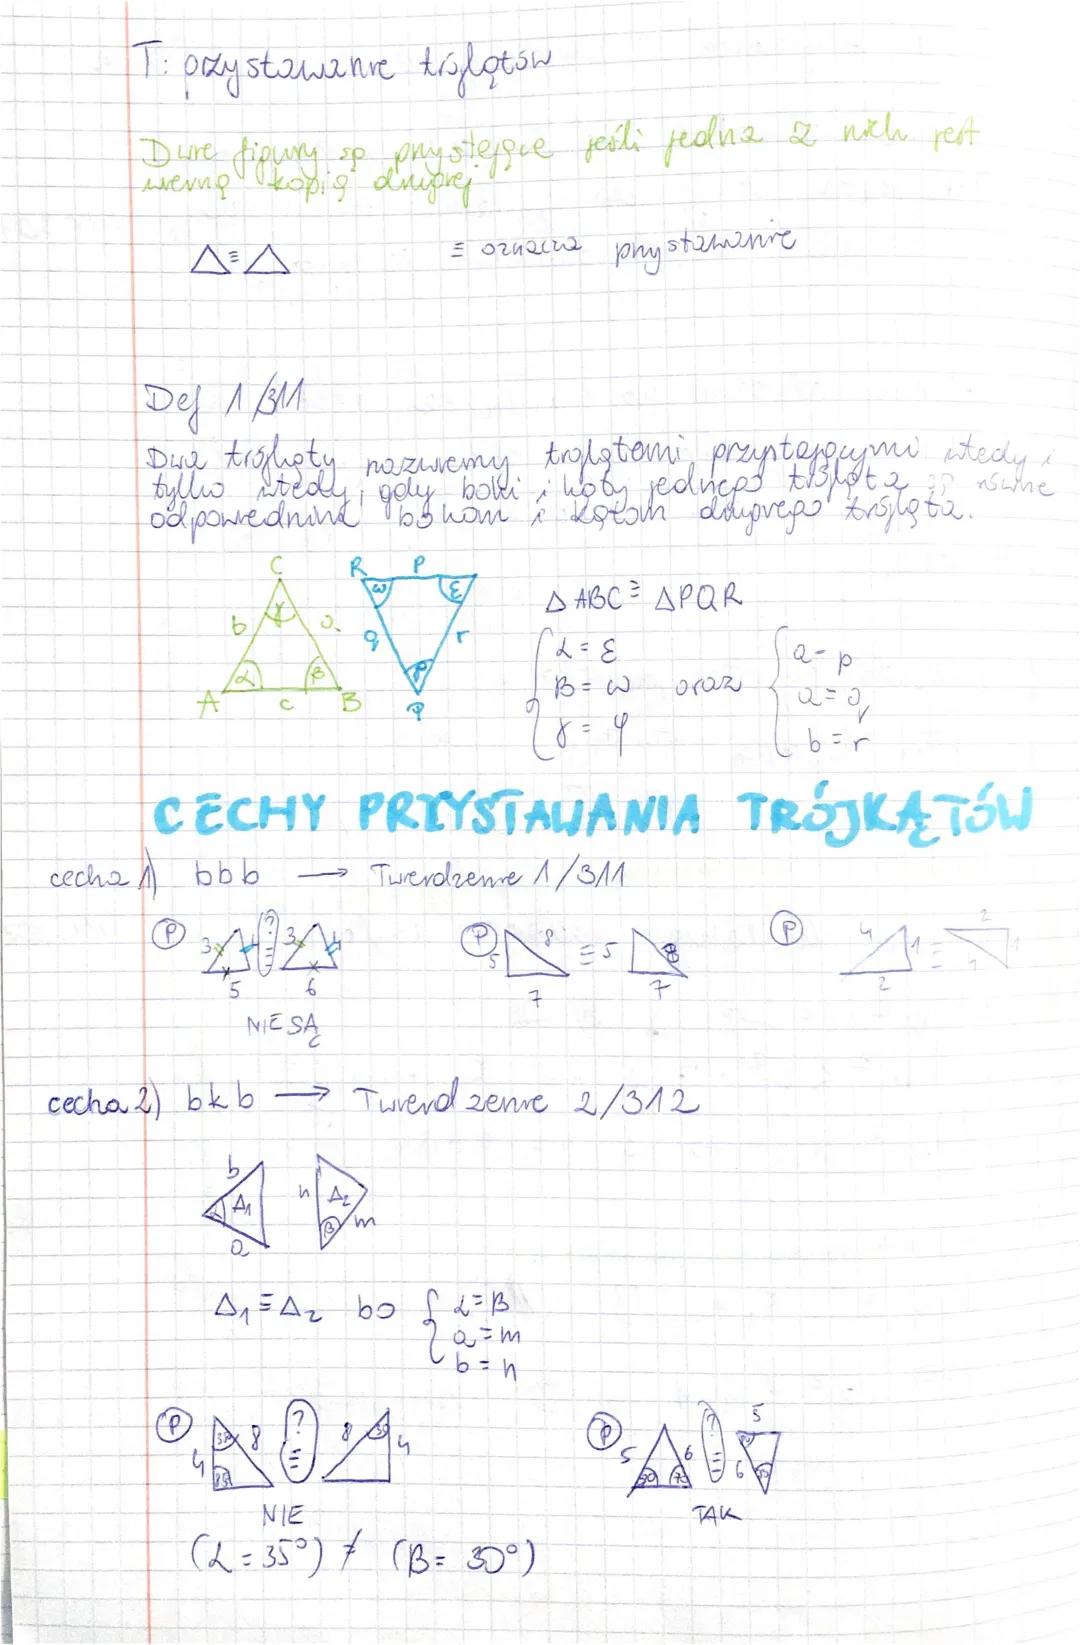 T: przystawanie trójkątów
Dwie figury są przystające jeśli jedna z nich jest
wierną kopią drugiej
△ ≡ △ ≡ oznacza przystawanie
Def 1/311
Dwa trójkąty nazwiemy trójkątami przystającymi wtedy i
tylko wtedy, gdy boki i kąty jednego trójkąta są równe
odpowiednim bokom i kątom drugiego trójkąta.
C R P
ω ε
γ
b a q r
α β φ
A c B
P
△ABC ≡ △PQR
α = ε
β = ω oraz
γ = φ
a = p
a = q
b = r
CECHY PRZYSTAWANIA TRÓJKĄTÓW
cecha 1) bbb → Twierdzenie 1/311
P 3 4 5 ? ≡ 3 4 6
NIE SĄ
P 5 8 7 ≡ 5 8 7
P 4 1 2 ≡ 2 1
cecha 2) bkb → Twierdzenie 2/312
b α Δ₁ a
n Δ₂ β m
Δ₁ ≡ Δ₂ bo
α = β
a = m
b = n
P 4 8 ? ≡ 8 4
NIE
(α = 35°) ≠ (β = 30°)
P 5 6 ? ≡ 5 6
TAK